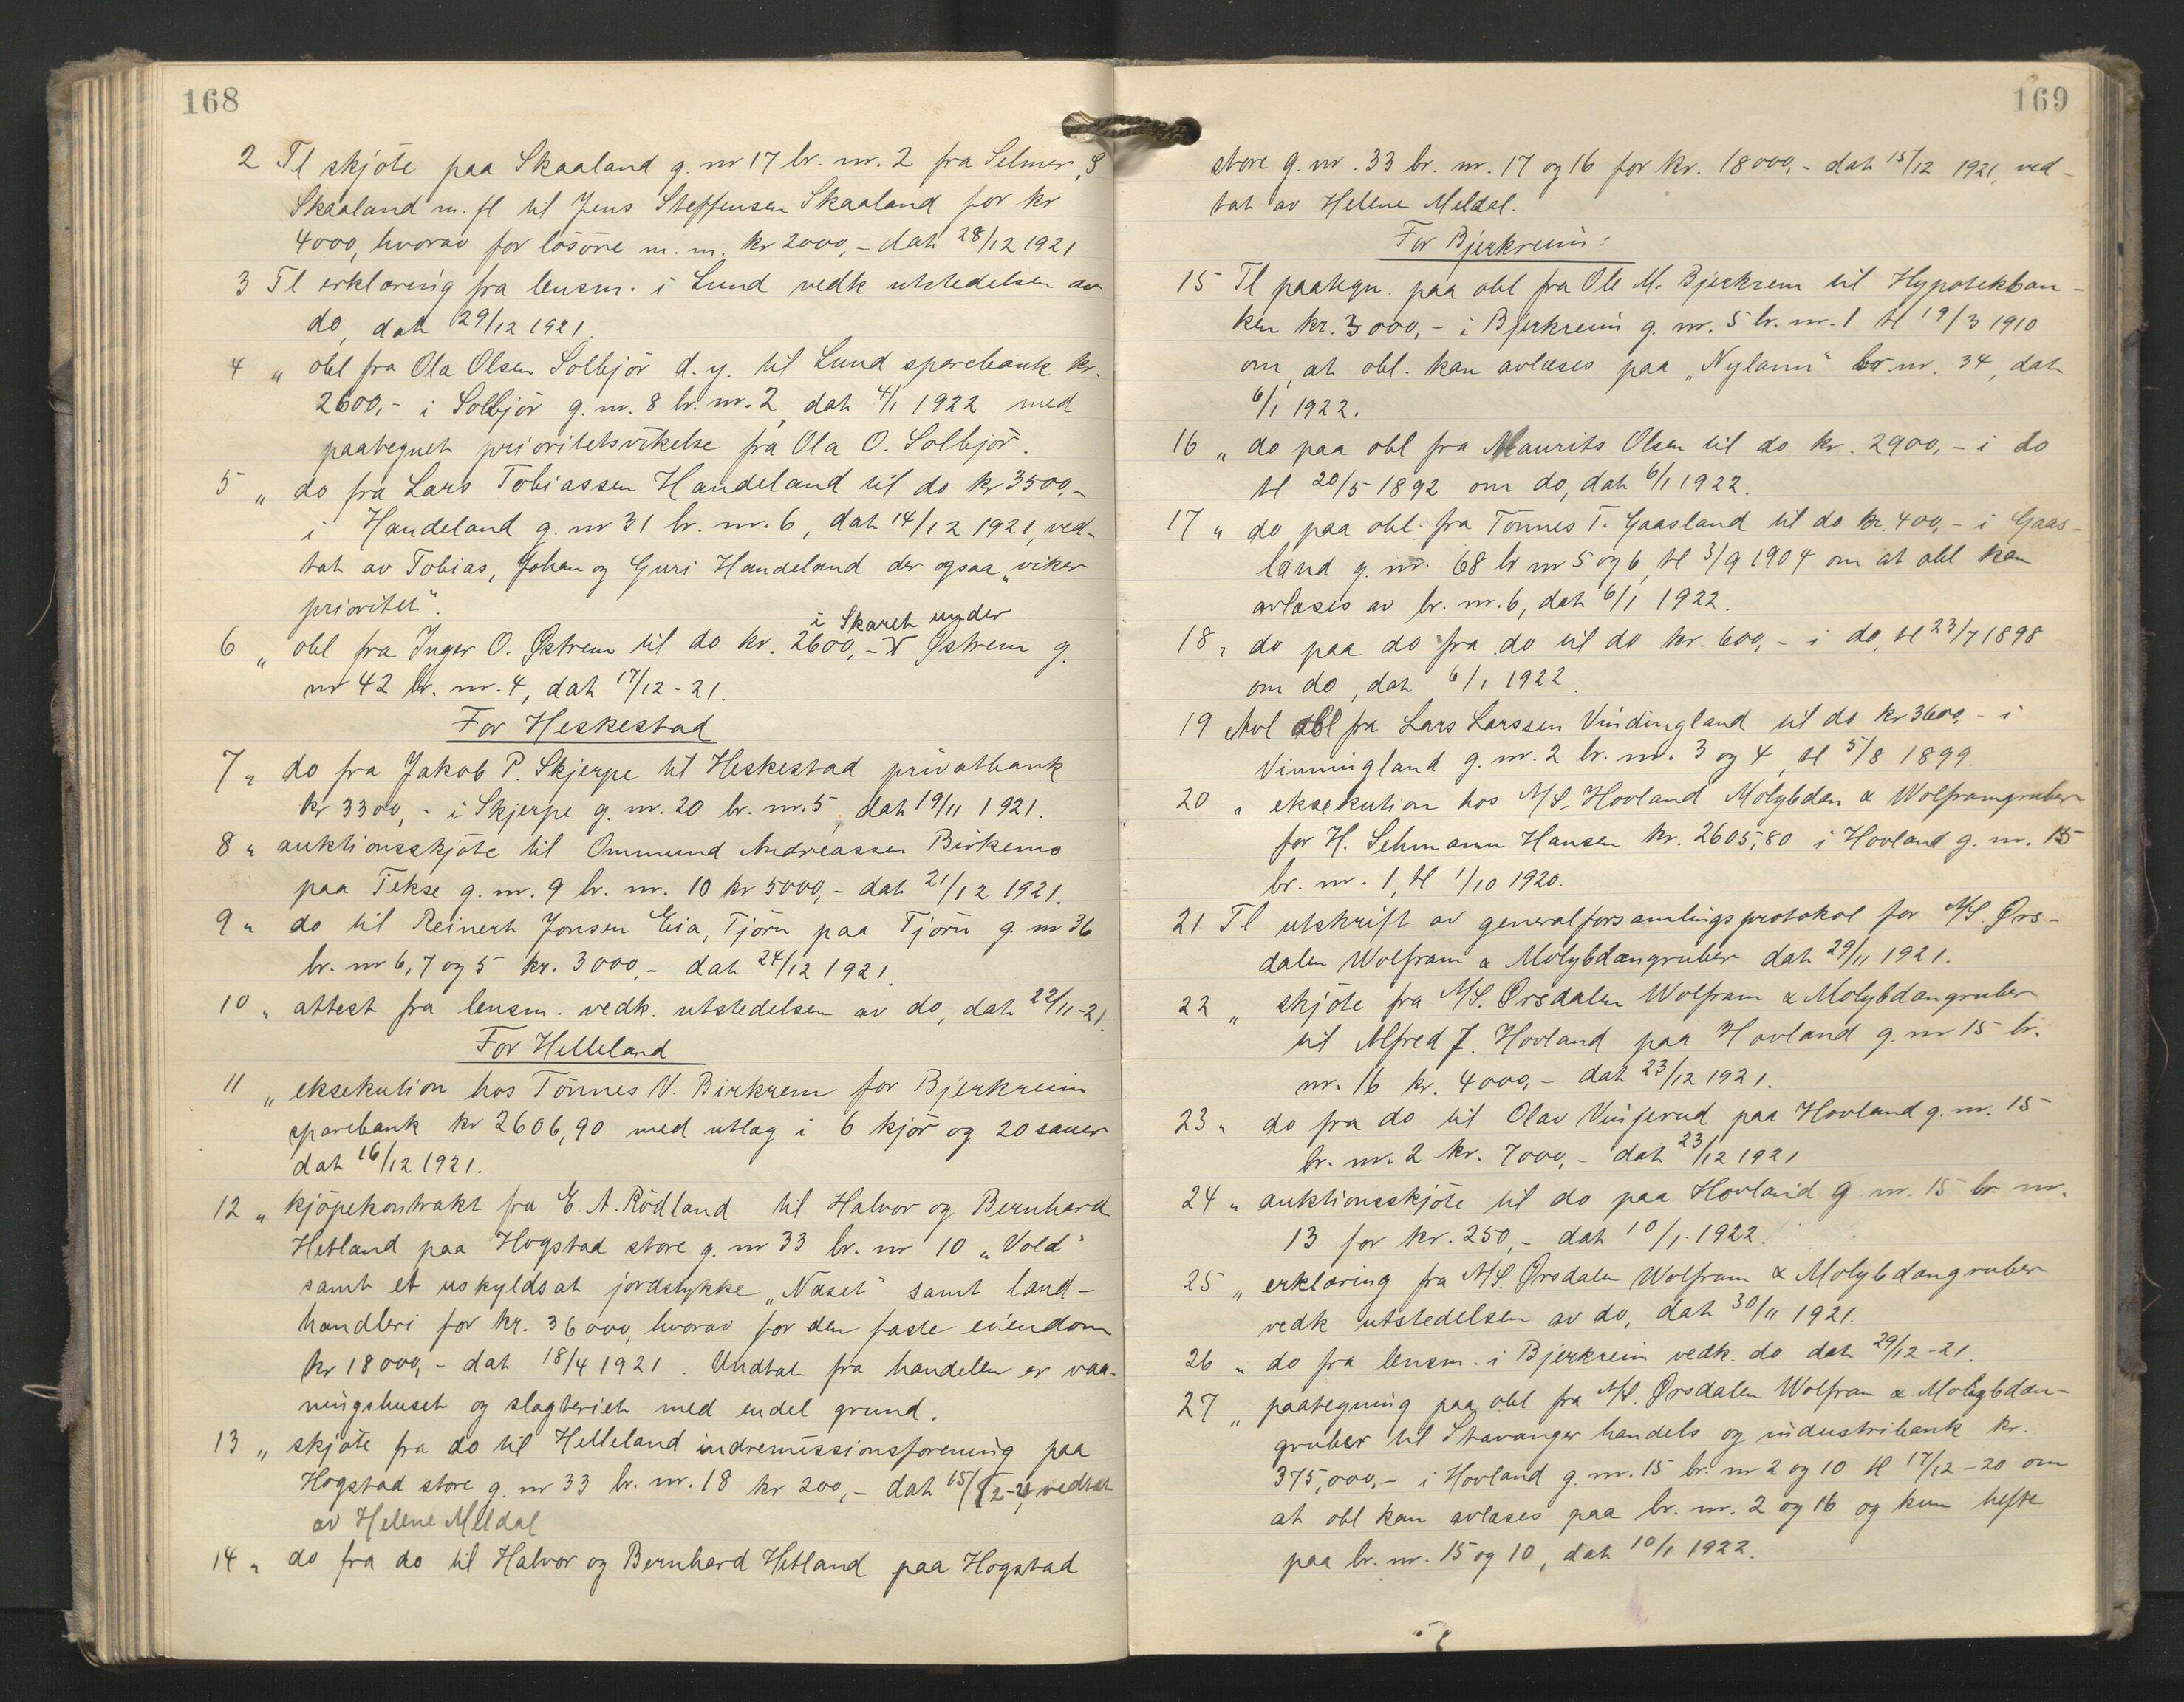 168
2 Tl skjøte paa Skaaland g. nr 17 br. nr. 2 fra Selmer S
Skaaland m. fl til Jens Steffensen Skaaland for kr
4000, hvorav for løsøre m. m. kr 2000,- dat 28/12 1921
3 Tl erklæring fra lensm. i Lund vedk utstedelsen av
do, dat 29/12 1921.
4 " obl fra Ola Olsen Solbjør d. y. til Lund sparebank kr.
2600,- i Solbjør g. nr. 8 br. nr. 2, dat 4/1 1922 med
paategnet prioritetsvikelse fra Ola O. Solbjør.
5 " do fra Lars Tobiassen Handeland til do kr 3500,-
i Handeland g. nr 31 br. nr. 6, dat 14/12 1921, ved-
tat av Tobias, Johan og Guri Handeland der ogsaa "viker
prioritet".
i Skaret under
6 " obl fra Inger O. Østrem til do kr. 2600,- Østrem g.
nr 42 br. nr. 4, dat 17/12-21.
For Heskestad
7 " do fra Jakob P. Skjerpe til Heskestad privatbank
kr 3300,- i Skjerpe g. nr. 20 br. nr. 5, dat 19/11 1921.
8 " auktionsskjøte til Ommund Andreassen Birkemo
paa Tekse g. nr. 9 br. nr. 10 kr 5000,- dat 21/12 1921.
9 " do til Reinert Jonsen Eia, Tjørn paa Tjørn g. nr 36
br. nr 6, 7 og 5 kr. 3000,- dat 24/12 1921.
10 " attest fra lensm. vedk. utstedelsen av do, dat 22/11-21.
For Helleland
11 " eksekution hos Tønnes V. Birkrem for Bjerkreim
sparebank kr 2606,90 med utlæg i 6 kjør og 20 sauer
dat 16/12 1921.
12 " kjøpekontrakt fra E. A. Rødland til Halvor og Bernhard
Hetland paa Høgstad store g. nr 33 br. nr 10 "Vold"
samt et uskyldsat jordstykke "Næset" samt land-
handleri for kr. 36000, hvorav for den faste eiendom
kr 18000,- dat 18/4 1921. Undtat fra handelen er vaa-
ningshuset og slagteriet med endel grund.
13 " skjøte fra do til Helleland indremissionsforening paa
Høgstad store g. nr 33 br. nr. 18 kr 200,- dat 15/12-21, vedtat
av Helene Meldal
14 " do fra do til Halvor og Bernhard Hetland paa Høgstad
169
store g. nr. 33 br. nr. 17 og 16 for kr. 18000,- dat 15/12 1921, ved-
tat av Helene Meldal.
For Bjerkreim:
15 Tl paategn. paa obl fra Ole M. Bjerkrem til Hypotekban-
ken kr. 3000,- i Bjerkreim g. nr. 5 br. nr. 1 tl 19/3 1910
om, at obl. kan avlæses paa "Nylann" br. nr. 34, dat
6/1 1922.
16 " do paa obl fra Maurits Olsen til do kr. 2900,- i do
tl 20/5 1892 om do, dat 6/1 1922.
17 " do paa obl. fra Tønnes T. Gaasland til do kr. 400,- i Gaas-
land g. nr. 68 br nr 5 og 6, tl 3/9 1904 om at obl kan
avlæses av br. nr. 6, dat 6/1 1922.
18 " do paa do fra do til do kr. 600,- i do, tl 23/7 1898
om do, dat 6/1 1922.
19 Avl obl fra Lars Larssen Vindingland til do kr 3600,- i
Vinningland g. nr. 2 br. nr. 3 og 4, tl 5/8 1899.
20 " eksekution hos A/S. Hovland Molybden & Wolframgruber
for H. Sehmann Hansen kr. 2605,80 i Hovland g. nr. 15
br. nr. 1, tl 1/10 1920.
21 Tl utskrift av generalforsamlingsprotokol for A/S. Ørs-
dalen Wolfram & Molybdængruber dat 29/11 1921.
22 " skjøte fra A/S. Ørsdalen Wolfram & Molybdængruber
til Alfred J. Hovland paa Hovland g. nr 15 br.
nr. 16 kr. 4000,- dat 23/12 1921.
23 " do fra do til Olav Vinjerud paa Hovland g. nr. 15
br. nr. 2 kr. 7000,- dat 23/12 1921
24 " auktionsskjøte til do paa Hovland g nr. 15 br. nr.
13 for kr. 250,- dat 10/1. 1922.
25 " erklæring fra A/S. Ørsdalen Wolfram & Molybdængruber
vedk utstedelsen av do, dat 30/11 1921.
26 " do fra lensm. i Bjerkreim vedk. do dat 29/12-21.
27 " paategning paa obl fra A/S. Ørsdalen Wolfram & Molybdæn-
gruber til Stavanger handels og industribank kr.
375,000,- i Hovland g. nr. 15 br. nr 2 og 10 tl 17/12-20 om
at obl kan avlæses paa br. nr. 2 og 16 og kun hefte
paa br. nr. 15 og 10, dat 10/1 1922.